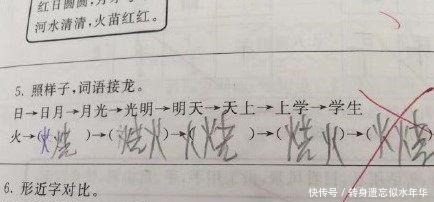 红日圆圆,
河水清清,火苗红红。
5. 照样子,词语接龙。
日→日月→月光→光明→明天→天上→上学→学生
火→(火烧)→(烧火)→(火烧)→(烧火)→(火烧)
6. 形近字对比。
快传号/转身遗忘似水年华